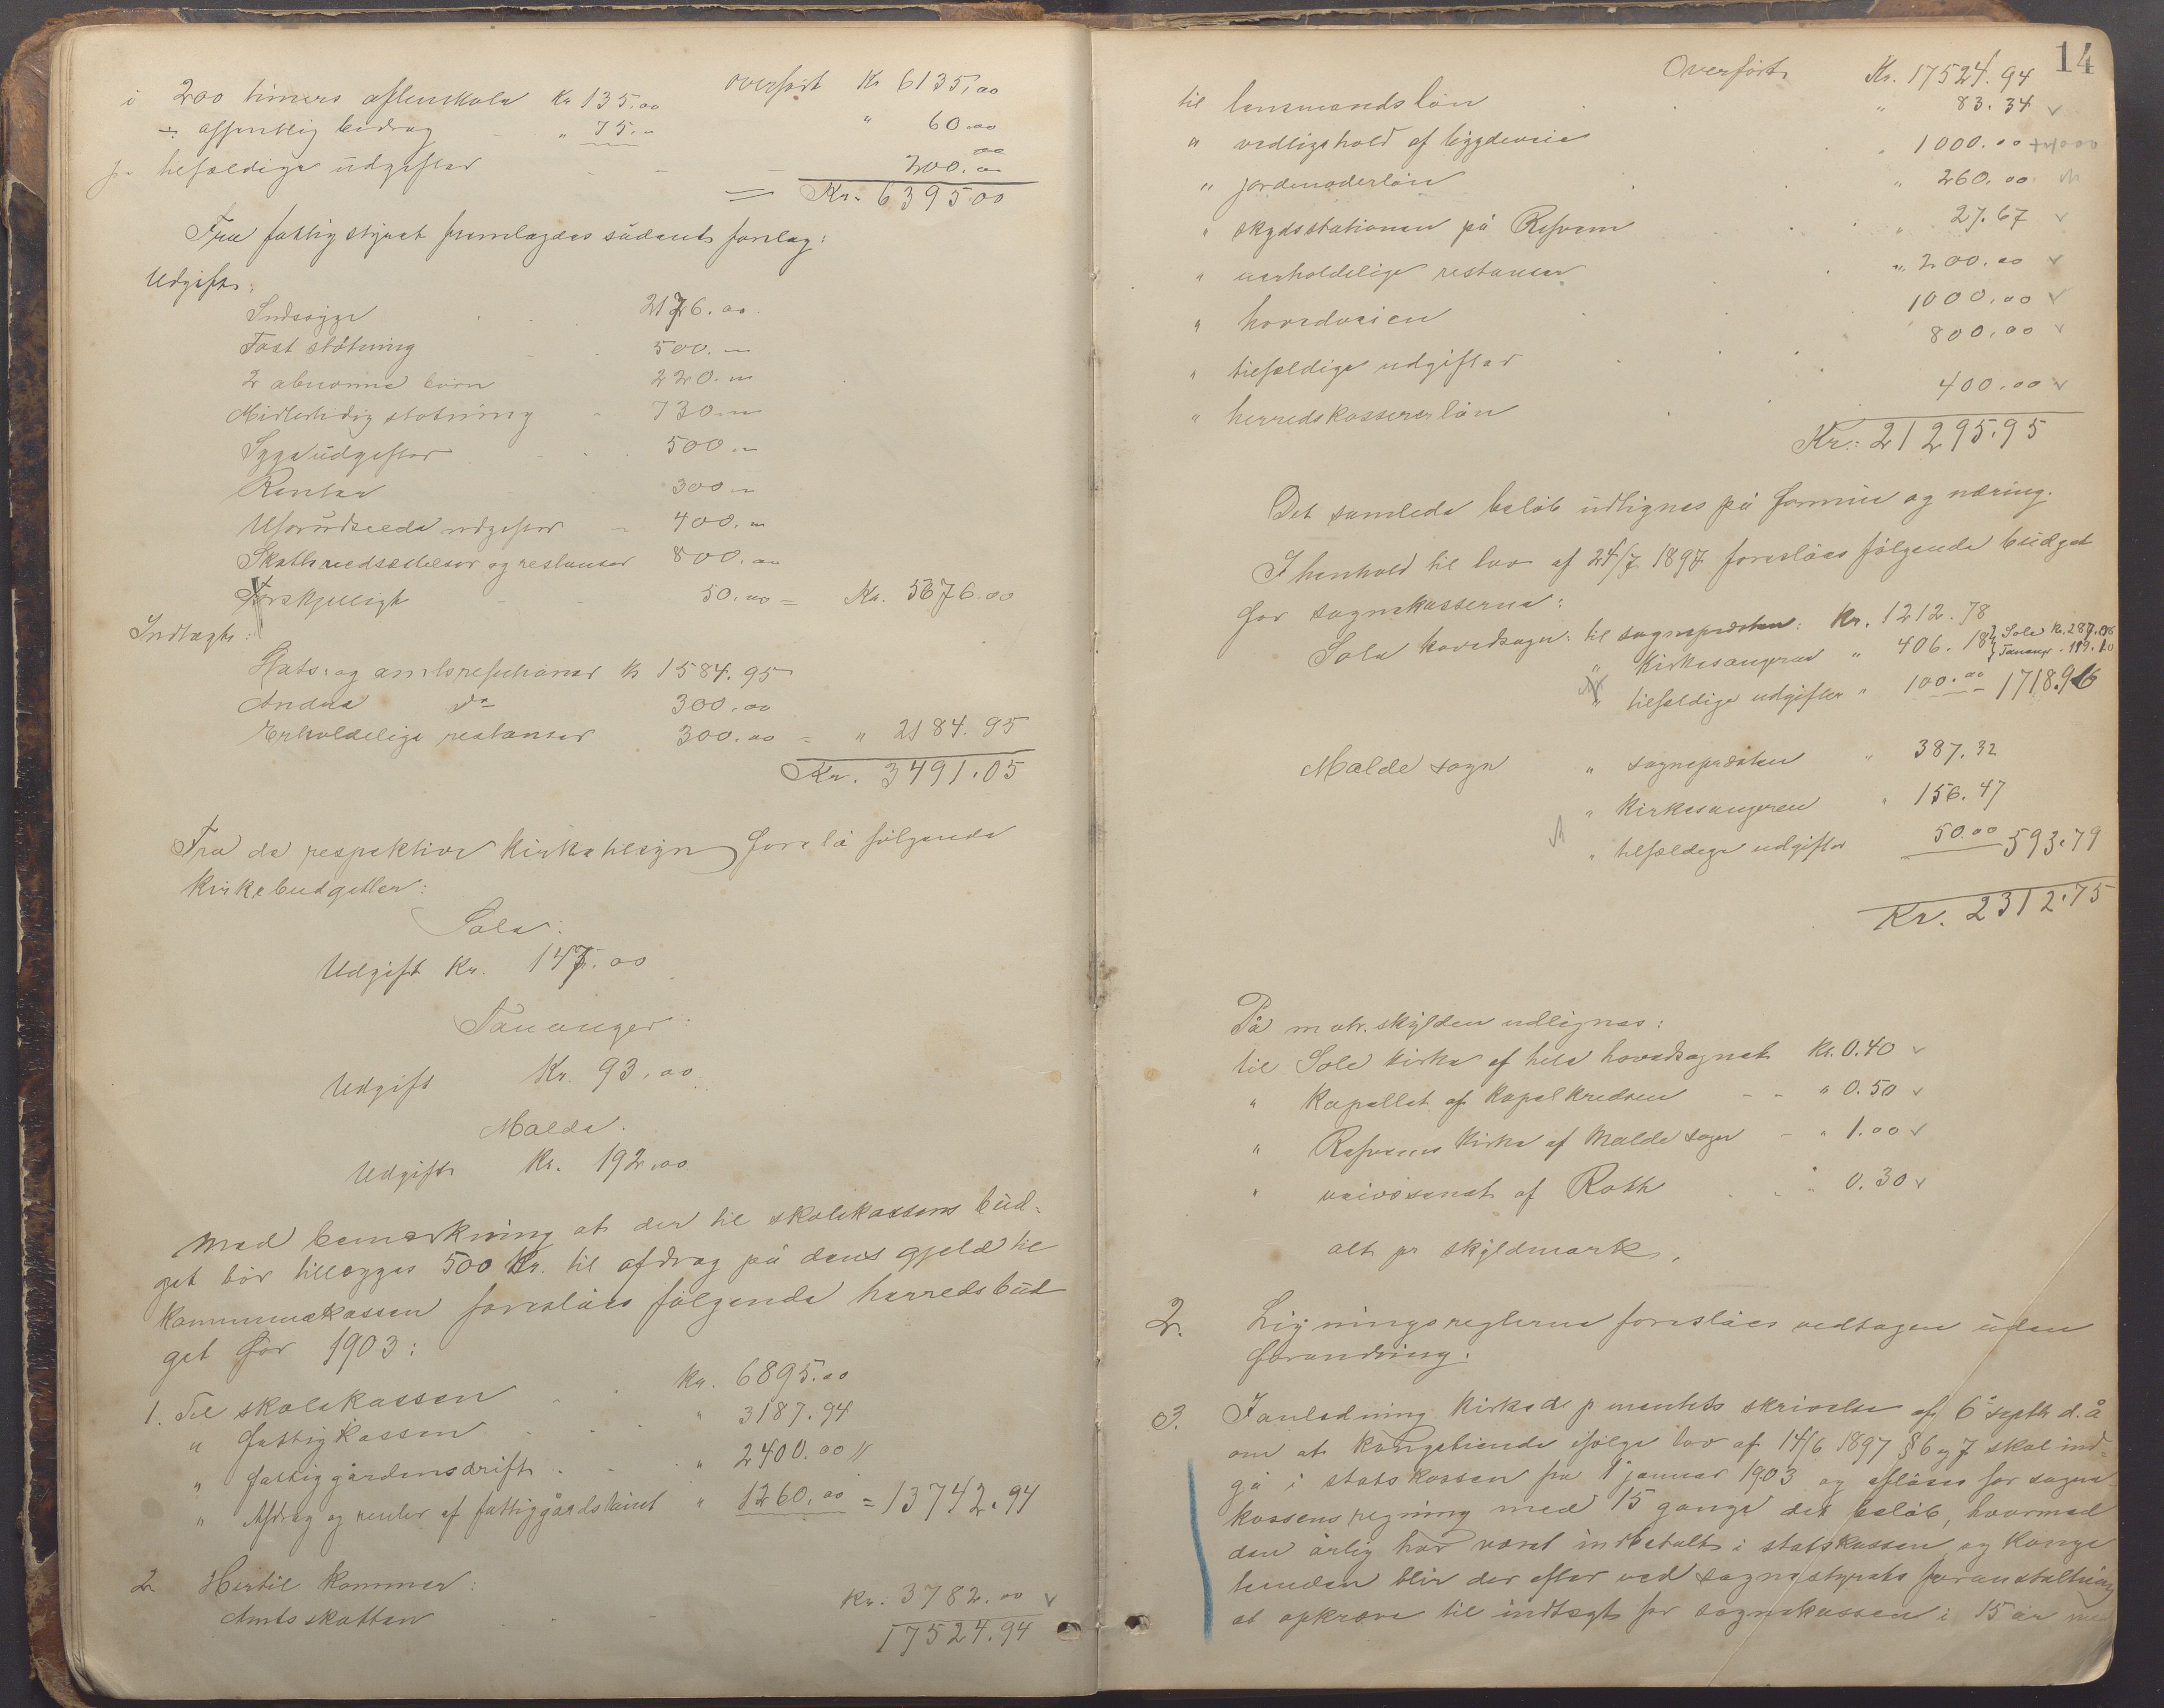 overført Kr 6135,00
i 200 timers aftenskole Kr 135,00
÷ offentlig bidrag - " 75.- " 60.00
tilfældige udgifter - - - 200.00
= Kr. 6395.00
Fra fattigstyret fremlagdes sådant forslag:
Udgift:
Indsøgge 2176.00
Fast støtning 500.-
2 abnorme børn 220.-
Midlertidig støtning - 730.-
Sygeudgifter 500.-
Renter 300.-
Uforudseede udgifter - 400.-
Skattenedsættelser og restancer 800.00
Forskjelligt 50.00 = Kr. 5676.00
Indtægt:
Stats- og amtsrefusioner Kr 1584.95
Andre do 300.00
Erholdelige restancer 300.00 = " 2184.95
Kr. 3491.05
Fra de respektive kirketilsyn forelå følgende
kirkebudgetter:
Sola:
Udgift Kr. 147.00
Tananger.
Udgift Kr. 93.00
Malde.
Udgift Kr. 192.00
Med bemærkning at der til skolekassens bud-
get bør tillægges 500 Kr. til afdrag på dens gjeld til
kommunekassen foreslåes følgende herredsbud
get for 1903:
1. Til skolekassen Kr. 6895.00
" fattigkassen " 3187.94
" fattiggårdens drift " 2400.00 "
" Afdrag og renter af fattiggårdslånet " 1260.00 = 13742.94
2 Hertil kommer:
Amtsskatten Kr. 3782.00 v
17524.94
14
Overført Kr. 17524.94
til lensmandsløn " 83.34 v
" vedligehold af bygdeveie " 1000.00 +1000
" jordemoderløn " 260.00
" skydsstationen på Refsvem " 27.67 v
" uerholdelige restancer " 200.00 v
" hovedveien 1000.00 v
" tilfældige udgifter 800.00 v
" herredskassererløn 400.00 v
Kr. 21295.95
Det samlede beløb udlignes på formue og næring.
I henhold til lov af 24/7 1897 foreslåes følgende budget
for sognekasserne:
Sola hovedsogn: til sognepresten: Kr. 1212.78
" Kirkesangeren " 406.18 { Sole Kr. 287.08 Tananger - 119.10
" tilfældige udgifter " 100.00 - 1718.96
Malde sogn " sognepresten " 387.32
" Kirkesangeren " 156.47
" tilfældige udgifter 50.00 593.79
Kr. 2312.75
På matr. skylden udlignes:
til Sole kirke af hele hovedsognet Kr. 0.40 v
" Kapellet af Kapelkredsen - - " 0.50 v
" Refsvems kirke af Malde sogn - " 1.00 v
" veivæsenet af Roth " 0.30 v
alt pr skyldmark.
2. Ligningsreglerne foreslåes vedtagen uden
forandring.
3. I anledning Kirkedepmentets skrivelse af 6 septb d. å
om at kongetiende ifølge lov af 14/6 1897 § 6 og 7 skal ind-
gå i statskassen fra 1 januar 1903 og afløses for sogne-
kassens regning med 15 gange det beløb, hvormed
den årlig har været indbetalt i statskassen og Konge
tienden blir der efter ved sognestyrets foranstaltning
at opkræve til indtægt for sognekassen i 15 år